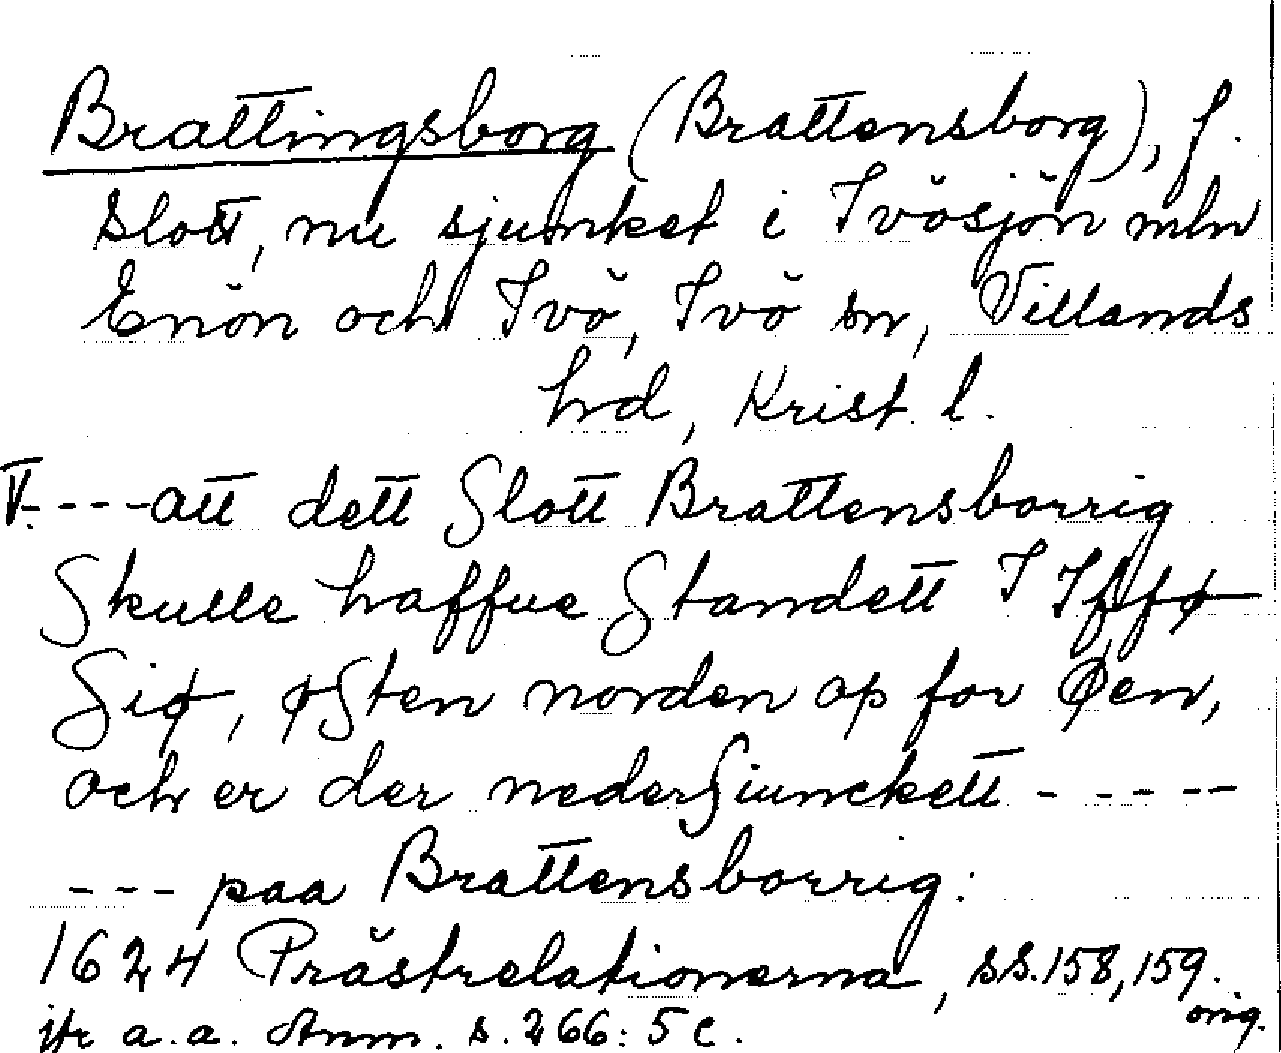 Brattingsborg (Brattensborg), f.
slott, nu sjunket i Ivösjön mln
Enön och Ivö, Ivö sn, Villands
hrd, Krist. l.
V. - - - att dett Slott Brattensborrig
Skulle haffue Standett I Iffø
Siø, østen norden op for Øen,
och er der nederSiunckett - - - - -
- - - paa Brattensborrig:
1624 Prästrelationerna, ss. 158, 159.
orig.
jfr a.a. Anm. s. 266: 5 c.